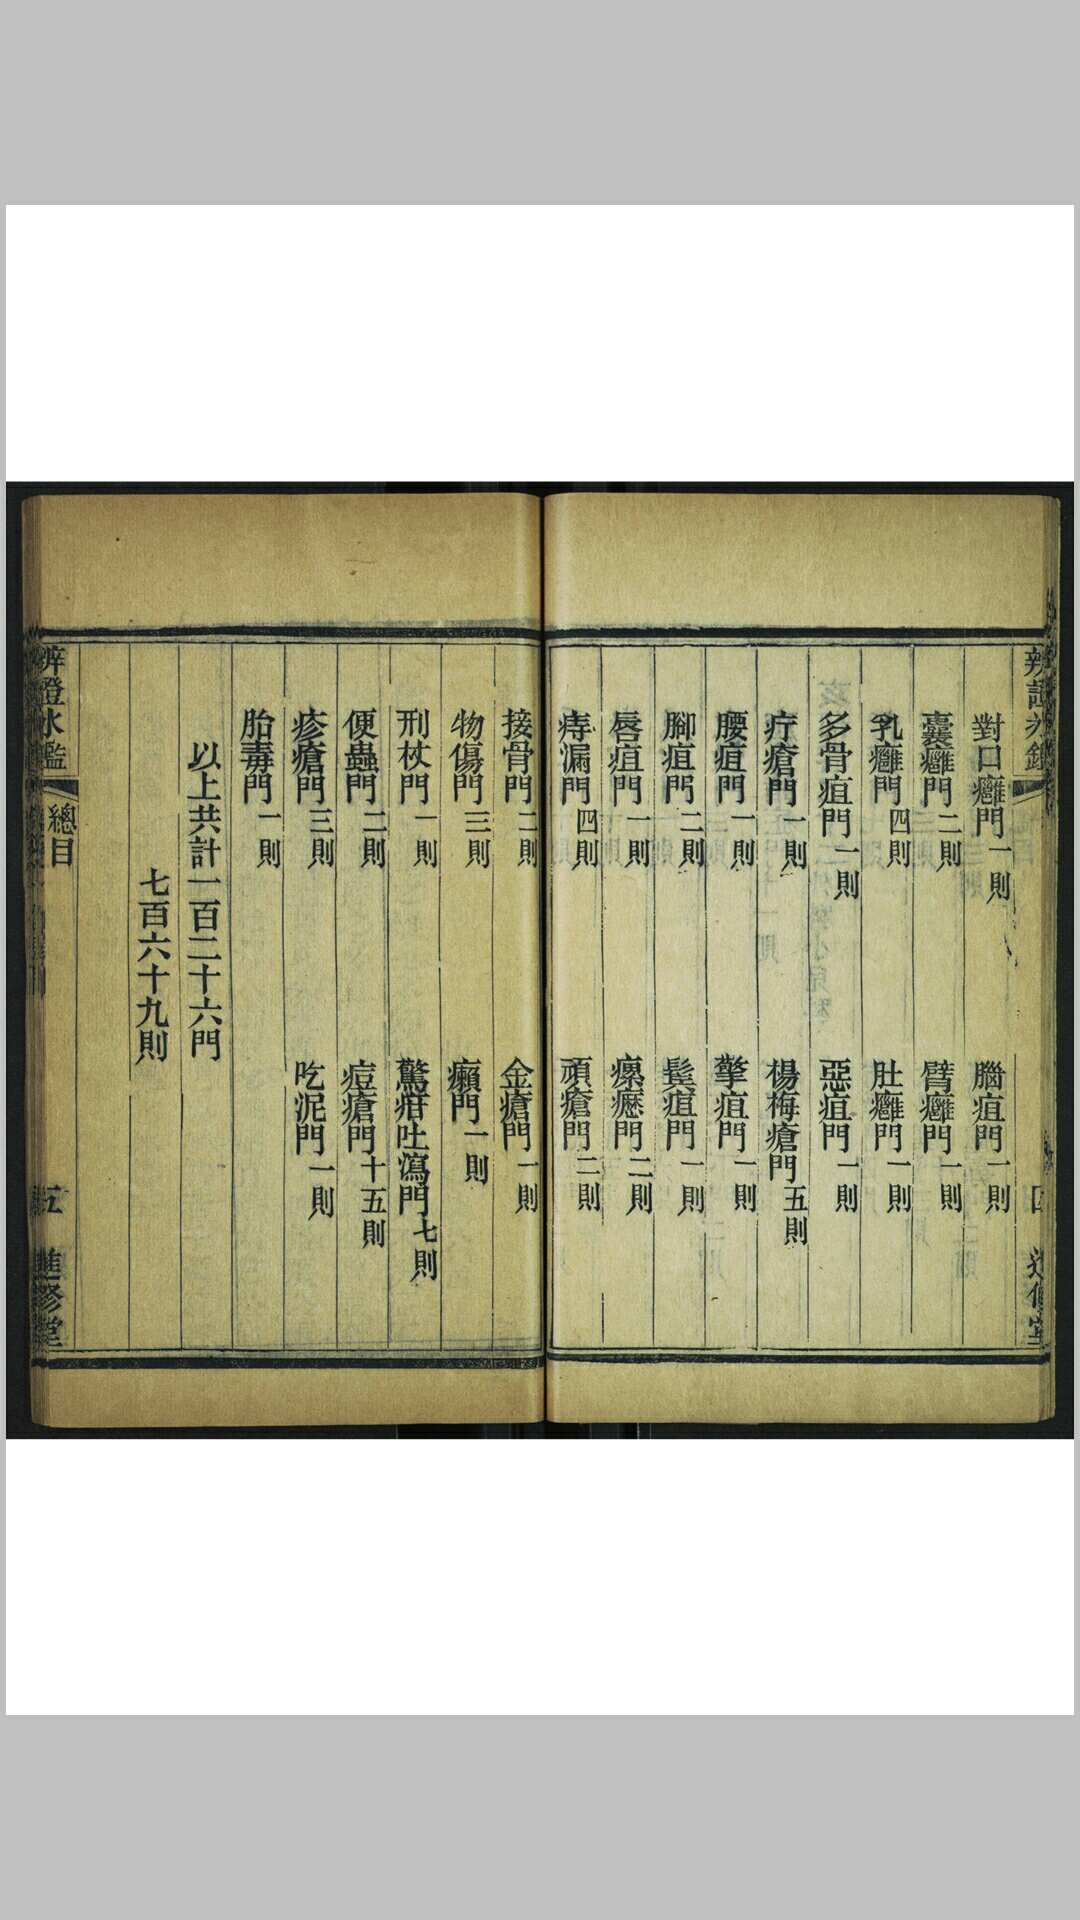 對口癰門一則
腦疽門一則
囊癰門二則
臂癰門一則
乳癰門四則
肚癰門一則
多骨疽門一則
惡疽門一則
疔瘡門一則
楊梅瘡門五則
腰疽門一則
擎疽門一則
腳疽門二則
鬓疽門一則
唇疽門一則
瘰癧門二則
痔漏門四則
頑瘡門二則
接骨門二則
金瘡門一則
物傷門三則
癩門一則
刑杖門一則
驚疳吐瀉門七則
便蟲門二則
痘瘡門十五則
疹瘡門三則
吃泥門一則
胎毒門一則
以上共計一百二十六門
七百六十九則
總目
五